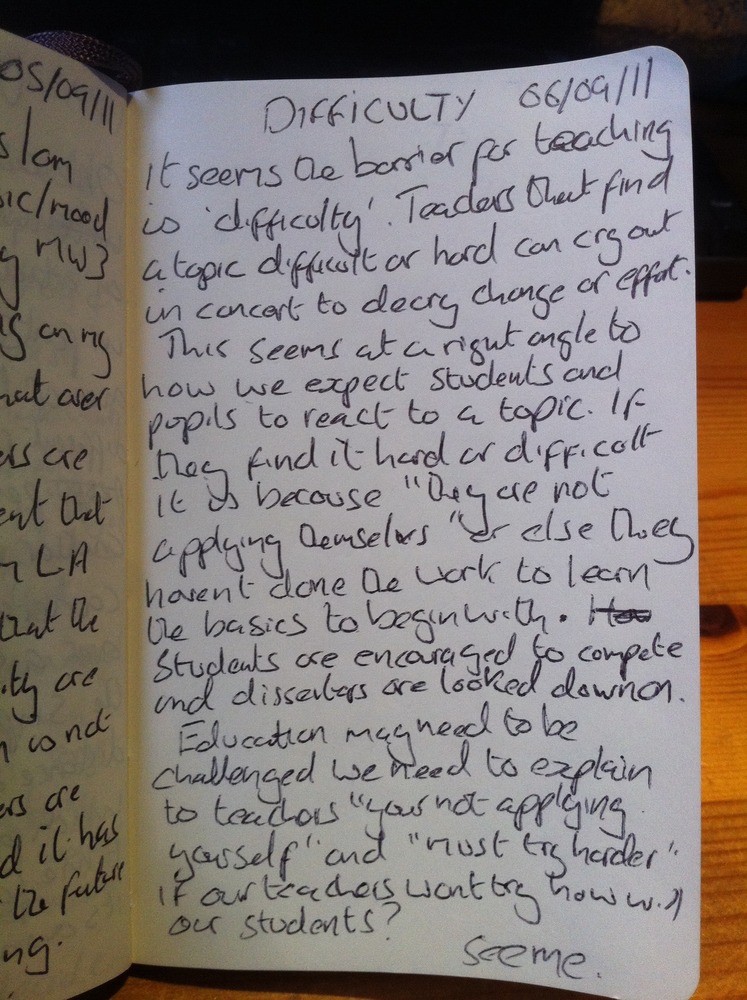 05/09/11
s/om
ic/mood
g MW3
on my
hat over
ers are
ent that
LA
that the
ity are
is not
ers are
d it has
the future
ng.
DIFFICULTY 06/09/11
it seems the barrier for teaching
is 'difficulty'. Teachers that find
a topic difficult or hard can cry out
in concert to decry change or effort.
This seems at a right angle to
how we expect students and
pupils to react to a topic. If
they find it hard or difficult
it is because "they are not
applying themselves" or else they
havent done the work to learn
the basics to begin with.
Students are encouraged to compete
and dissenters are looked down on.
Education may need to be
challenged we need to explain
to teachers "your not applying
yourself" and "must try harder".
if our teachers wont try how will
our students?
Seeme.